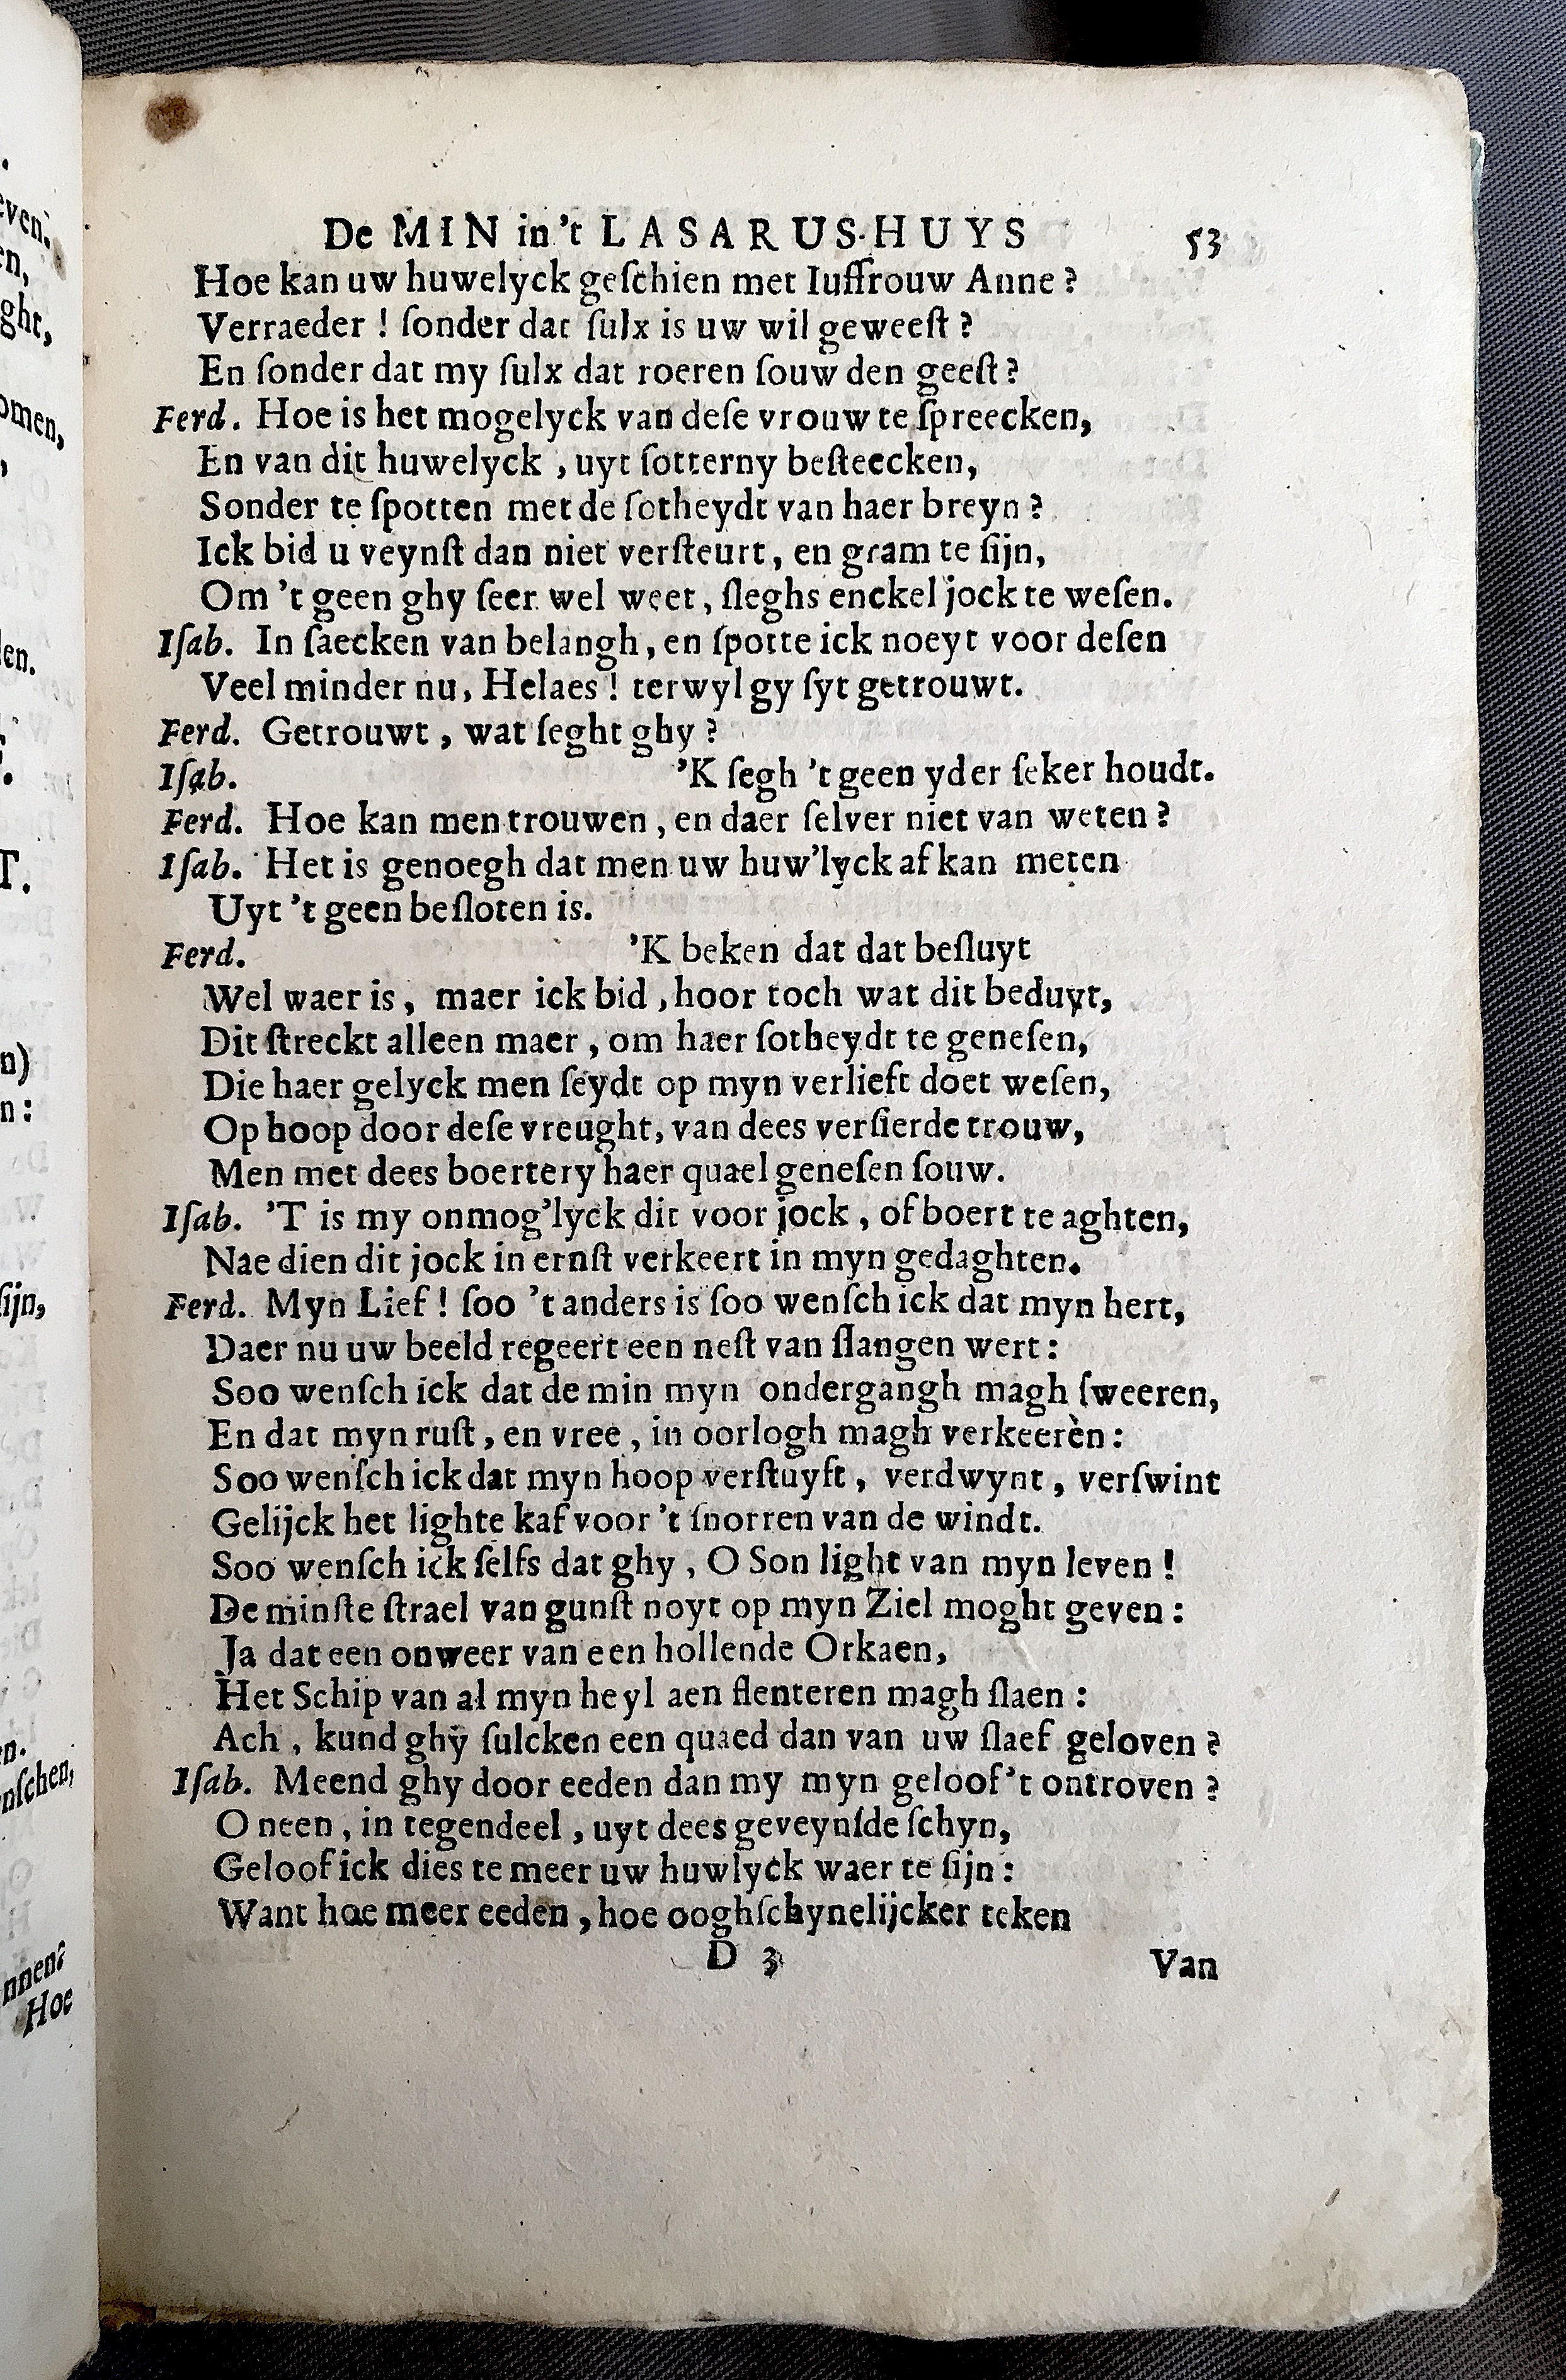 De MIN in't LASARUS-HUYS 53
Hoe kan uw huwelyck geſchien met Iuffrouw Anne?
Verraeder! ſonder dat ſulx is uw wil geweeſt?
En ſonder dat my ſulx dat roeren ſouw den geeſt?
Ferd. Hoe is het mogelyck van deſe vrouw te ſpreecken,
En van dit huwelyck, uyt ſotterny beſteecken,
Sonder te ſpotten met de ſotheydt van haer breyn?
Ick bid u veynſt dan niet verſteurt, en gram te ſijn,
Om 't geen ghy ſeer wel weet, ſleghs enckel jock te weſen.
Iſab. In ſaecken van belangh, en ſpotte ick noeyt voor deſen
Veel minder nu, Helaes! terwyl gy ſyt getrouwt.
Ferd. Getrouwt, wat ſeght ghy?
Iſab. 'K ſegh 't geen yder ſeker houdt.
Ferd. Hoe kan men trouwen, en daer ſelver niet van weten?
Iſab. Het is genoegh dat men uw huw'lyck af kan meten
Uyt 't geen beſloten is.
Ferd. 'K beken dat dat beſluyt
Wel waer is, maer ick bid, hoor toch wat dit beduyt,
Dit ſtreckt alleen maer, om haer ſotheydt te geneſen,
Die haer gelyck men ſeydt op myn verlieft doet weſen,
Op hoop door deſe vreught, van dees verſierde trouw,
Men met dees boertery haer quael geneſen ſouw.
Iſab. 'T is my onmog'lyck dit voor jock, of boert te aghten,
Nae dien dit jock in ernſt verkeert in myn gedaghten.
Ferd. Myn Lief! ſoo 't anders is ſoo wenſch ick dat myn hert,
Daer nu uw beeld regeert een neſt van ſlangen wert:
Soo wenſch ick dat de min myn ondergangh magh ſweeren,
En dat myn ruſt, en vree, in oorlogh magh verkeerèn:
Soo wenſch ick dat myn hoop verſtuyft, verdwynt, verſwint
Gelijck het lighte kaf voor 't ſnorren van de windt.
Soo wenſch ick ſelfs dat ghy, O Son light van myn leven!
De minſte ſtrael van gunſt noyt op myn Ziel moght geven:
Ja dat een onweer van een hollende Orkaen,
Het Schip van al myn heyl aen flenteren magh ſlaen:
Ach, kund ghy ſulcken een quaed dan van uw ſlaef geloven?
Iſab. Meend ghy door eeden dan my myn geloof 't ontroven?
O neen, in tegendeel, uyt dees geveynſde ſchyn,
Geloof ick dies te meer uw huwlyck waer te ſijn:
Want hoe meer eeden, hoe ooghſchynelijcker teken
D 3 Van